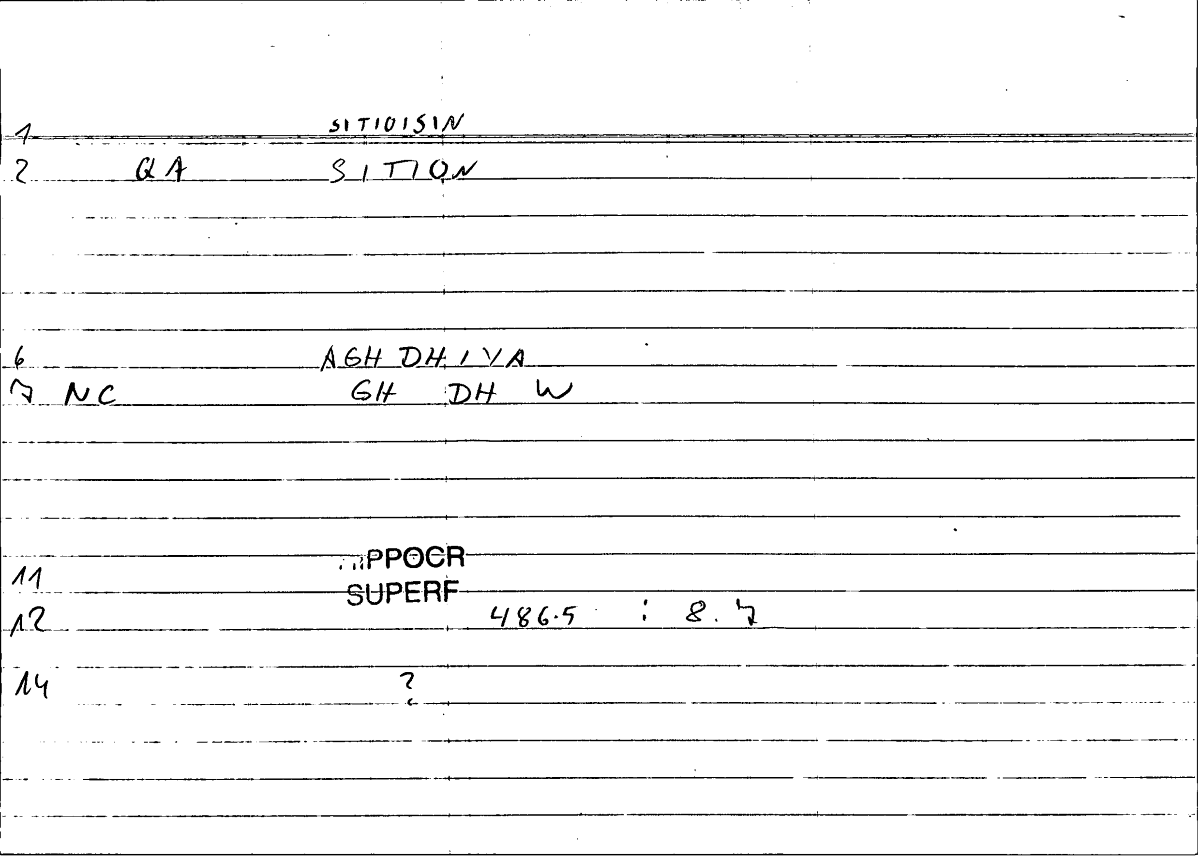 1 SITIOISIN
2 QA SITION
6 AGH DH IYA
7 NC GH DH W
11 HIPPOCR
SUPERF
12 486.5 : 8.7
14 ?